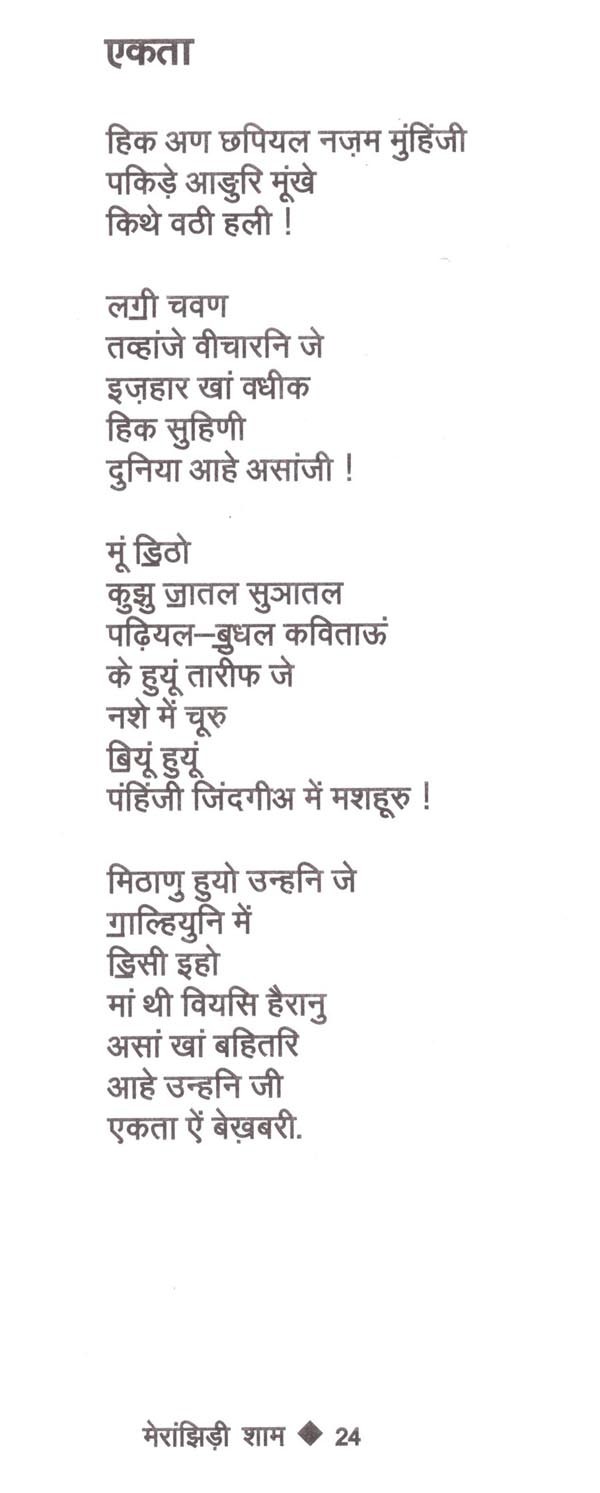 एकता

हिक अण छपियल नज़म मुंहिंजी
पकिड़े आङुरि मूंखे
किथे वठी हली !

लॻी चवण
तव्हांजे वीचारनि जे
इज़हार खां वधीक
हिक सुहिणी
दुनिया आहे असांजी !

मूं ॾिठो
कुझु ॼातल सुञातल
पढ़ियल–ॿुधल कविताऊं
के हुयूं तारीफ जे
नशे में चूरु
ॿियूं हुयूं
पंहिंजी जिंदगीअ में मशहूरु !

मिठाणु हुयो उन्हनि जे
ॻाल्हियुनि में
ॾिसी इहो
मां थी वियसि हैरानु
असां खां बहितरि
आहे उन्हनि जी
एकता ऐं बेख़बरी.

मेरांझिड़ी शाम ◆ 24